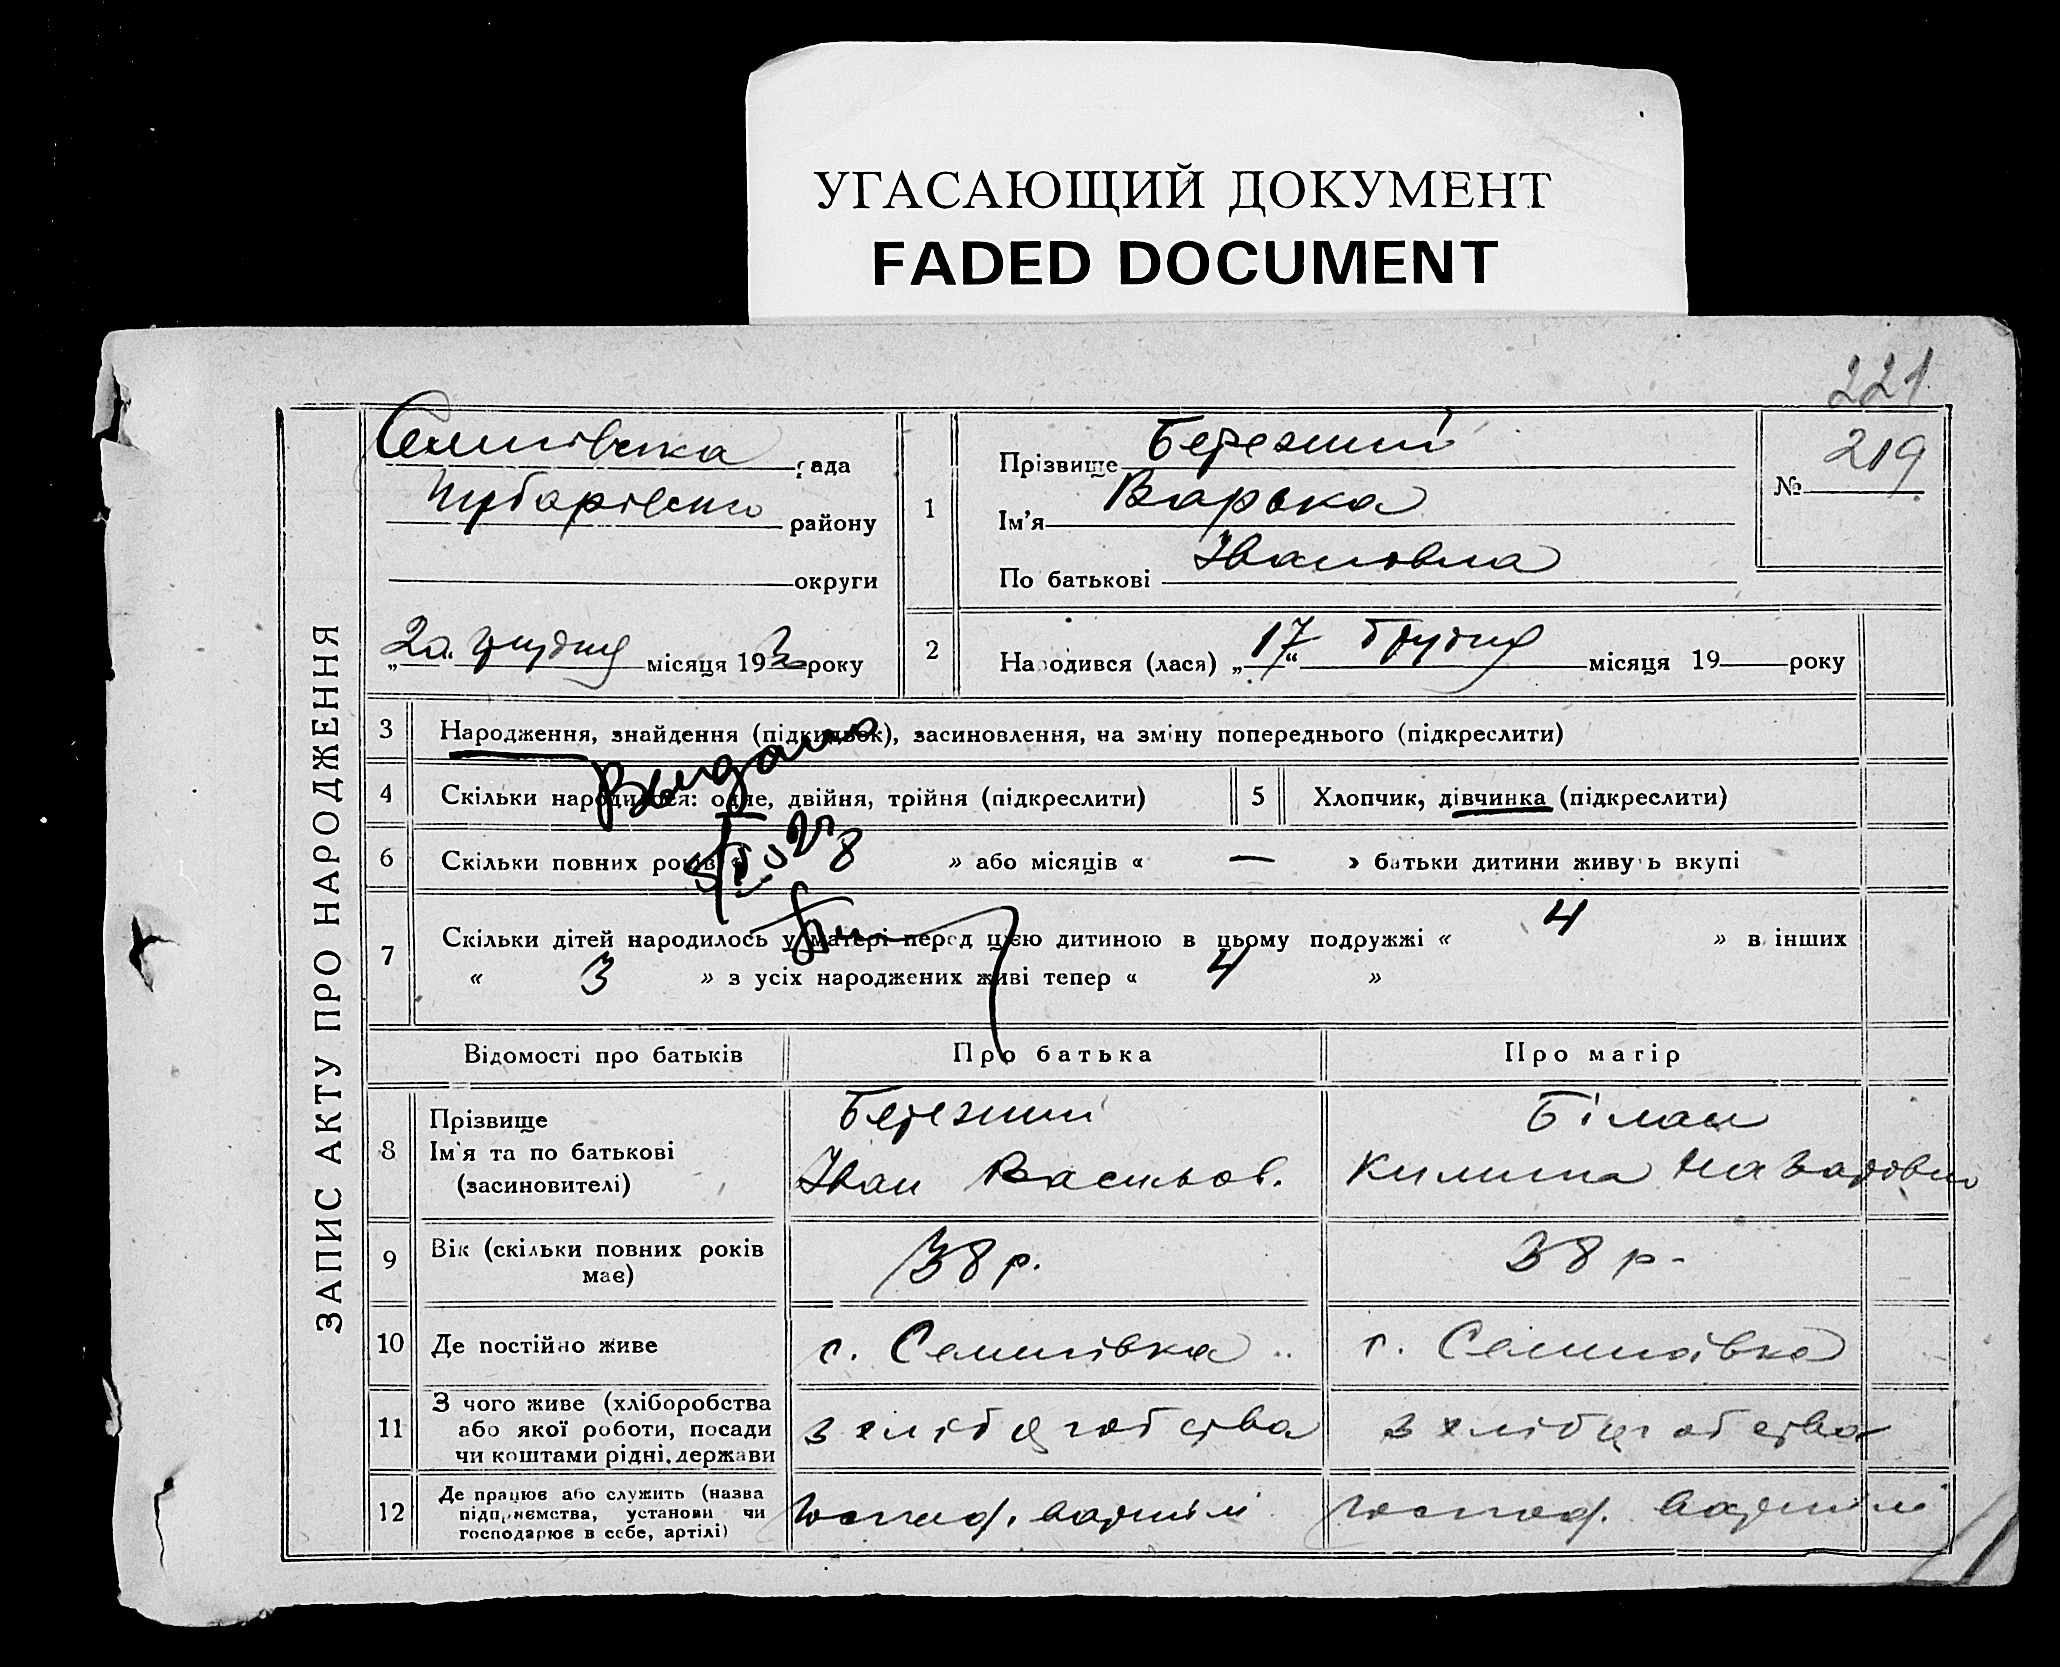 УГАСАЮЩИЙ ДОКУМЕНТ
FADED DOCUMENT
221
ЗАПИС АКТУ ПРО НАРОДЖЕННЯ
Семенівська рада
Чубарівського району
округи
„20 грудня місяця 193 року
1
Прізвище Березний
Ім'я Варька
По батькові Івановна
№ 219
2
Народився (лася) „17“ Грудня місяця 19 року
3 Народження, знайдення (підкидьок), засиновлення, на зміну попереднього (підкреслити)
Выдано
4 Скільки народилося: одне, двійня, трійня (підкреслити)
5 Хлопчик, дівчинка (підкреслити)
6 Скільки повних років « 8 » або місяців « — » батьки дитини живуть вкупі
7 Скільки дітей народилось у матері перед цією дитиною в цьому подружжі « 4 » в інших
« 3 » з усіх народжених живі тепер « 4 »
Відомості про батьків Про батька Про матір
8 Прізвище
Ім'я та по батькові
(засиновителі)
Березний
Іван Васильов.
Білан
Килина
9 Вік (скільки повних років
має)
38 р.
38 р-
10 Де постійно живе
с. Семенівка
с. Семенівка
11 З чого живе (хліборобства
або якої роботи, посади
чи коштами рідні, держави
з хліборобства
з хліборобства
12 Де працює або служить (назва
підприємства, установи чи
господарює в себе, артілі)
артілі
артілі